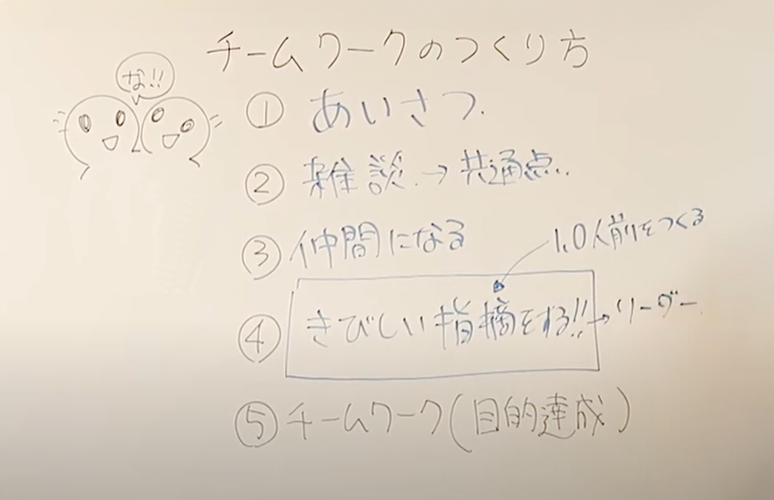 チームワークのつくり方
な!!
① あいさつ.
② 雑談.→共通点..
③ 仲間になる
1.0人前をつくる
④ きびしい指摘をする!!→リーダー
⑤ チームワーク(目的達成)